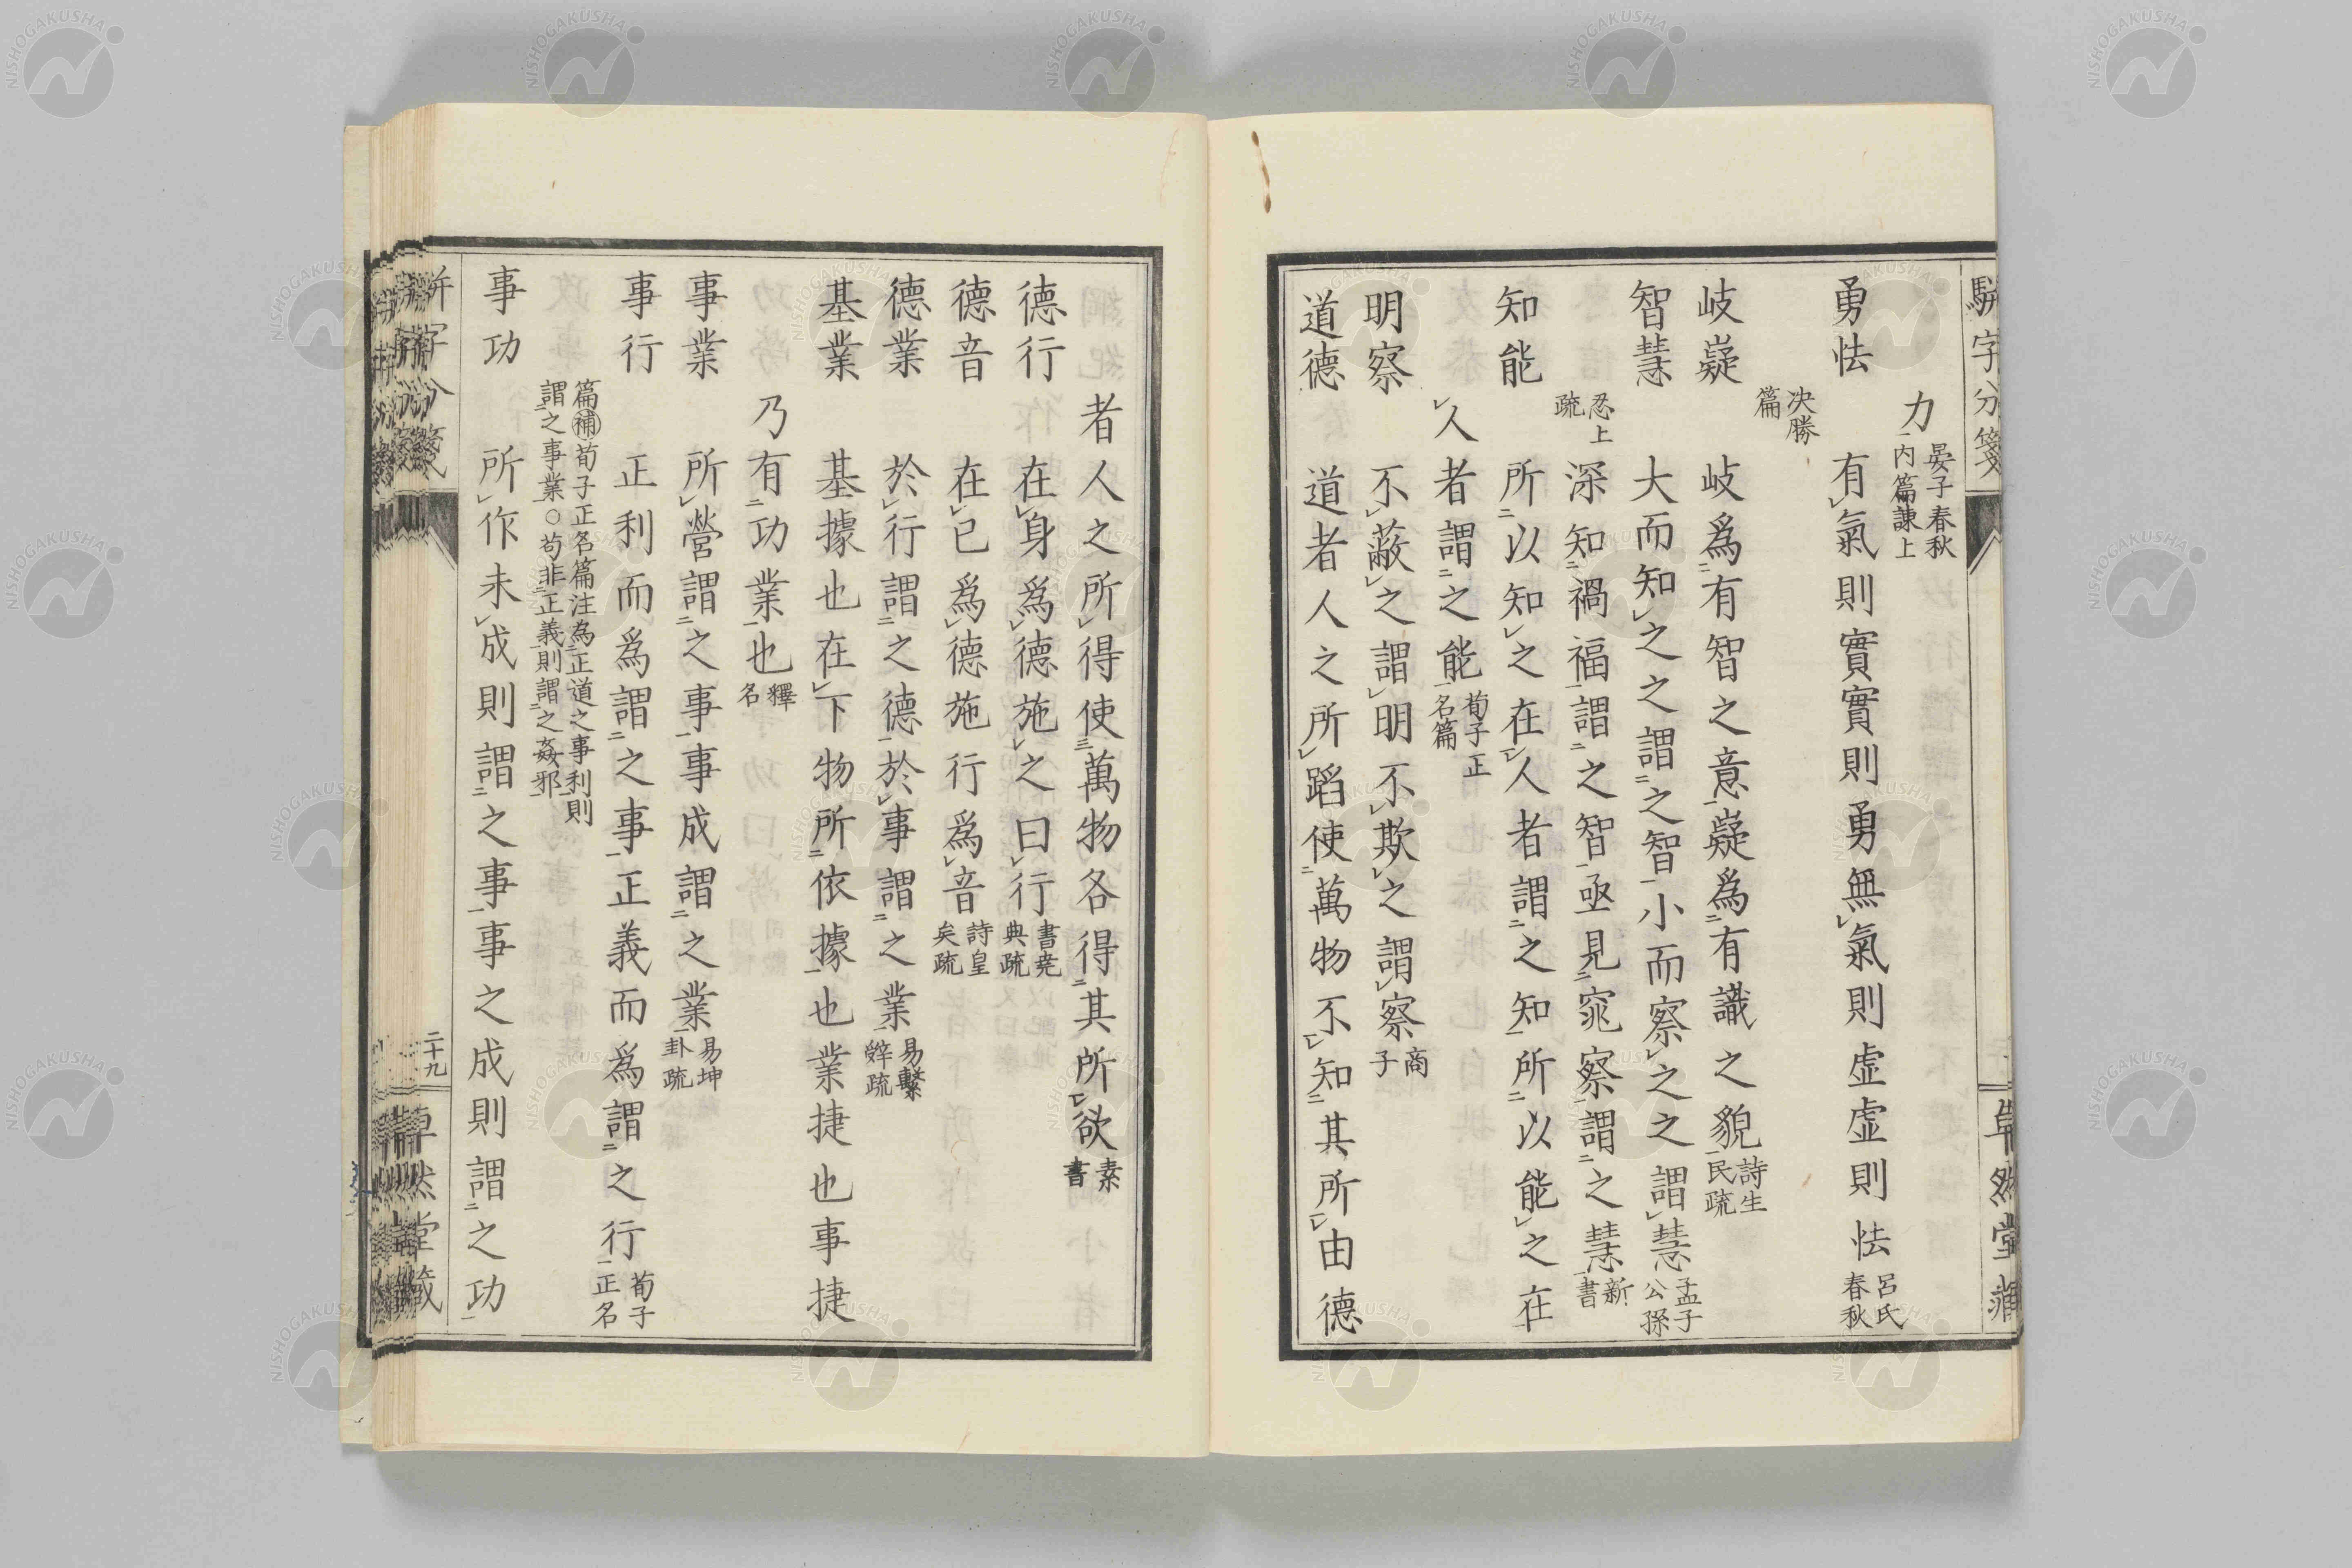 駢字分箋
卓然堂藏
力 晏子春秋內篇諫上
勇怯 有氣則實實則勇無氣則虛虛則怯 呂氏春秋
決勝篇
岐嶷 岐爲有智之意嶷爲有識之貌 詩生民疏
智慧 大而知之之謂之智小而察之之謂慧 孟子公孫
丑上疏 深知禍福謂之智亟見窕察謂之慧 新書
知能 所以知之在人者謂之知所以能之在
人者謂之能 荀子正名篇
明察 不蔽之謂明不欺之謂察 商子
道德 道者人之所蹈使萬物不知其所由德
者人之所得使萬物各得其所欲 素書
德行 在身爲德施之曰行 書堯典疏
德音 在已爲德施行爲音 詩皇矣疏
德業 於行謂之德於事謂之業 易繫辭疏
基業 基據也在下物所依據也業捷也事捷
乃有功業也 釋名
事業 所營謂之事事成謂之業 易坤卦疏
事行 正利而爲謂之事正義而爲謂之行 荀子正名
篇補荀子正名篇注為正道之事利則謂之事業○苟非正義則謂之姦邪
事功 所作未成則謂之事事之成則謂之功
二十九
NISHOGAKUSHA